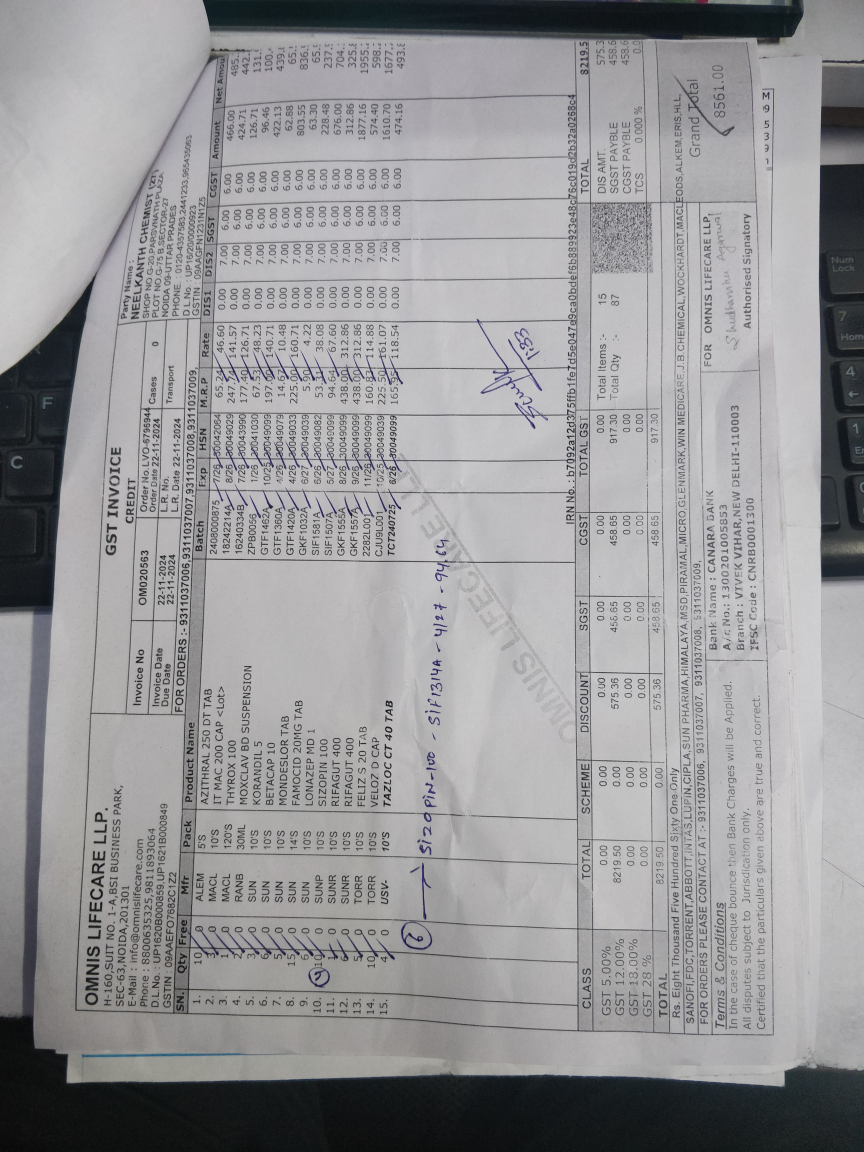 GST INVOICE
CREDIT
OMNIS LIFECARE LLP.
H-160,SUIT NO. 1-A,BSI BUSINESS PARK,
SEC-63,NOIDA,201301
E-Mail : info@omnislifecare.com
Phone : 8800635325,9811893064
D.L.No. : UP1620B000859,UP1621B000849
GSTIN : 09AAEFO7682C1Z2
Invoice No OM020563 Order No. LVO-6796944 Cases 0
Order Date 22-11-2024
Invoice Date 22-11-2024 L.R. No. Transport
Due Date 22-11-2024 L.R. Date 22-11-2024
FOR ORDERS :- 9311037006,9311037007,9311037008,9311037009,
Party Name :
NEELKANTH CHEMIST
SHOP NO G-20,PARSVNATH PLAZA
PLOT NO G-75 B,SECTOR-27
NOIDA 09-UTTAR PRADES
PHONE : 0120-4357583,2441233,965435063
D.L.No. : UP16200000923
GSTIN : 09AAGFN1231N1Z5
SN. Qty Free Mfr Pack Product Name Batch Exp HSN M.R.P Rate DIS1 DIS2 SGST CGST Amount Net Amou
1. 10 0 ALEM 5'S AZITHRAL 250 DT TAB 2408000875 7/26 30042064 65.24 46.60 0.00 7.00 6.00 6.00 466.00 485.
2. 0 MACL 10'S IT MAC 200 CAP <Lot> 18242214A 8/26 30049029 247.74 141.57 0.00 7.00 6.00 6.00 424.71 442.
3. 1 0 MACL 120'S THYROX 100 16240334B 7/26 30043990 177.40 126.71 0.00 7.00 6.00 6.00 126.71 131.
4. 2 0 RANB 30ML MOXCLAV BD SUSPENSION ZPB0056 1/26 30041030 67.53 48.23 0.00 7.00 6.00 6.00 96.46 100.
5. 3 0 SUN 10'S KORANDIL 5 GTF1465A 10/25 30049099 197.00 140.71 0.00 7.00 6.00 6.00 422.13 439.
6. 6 0 SUN 10'S BETACAP 10 GTF1360A 30049079 14.67 10.48 0.00 7.00 6.00 6.00 62.88 65.
7. 5 0 SUN 10'S MONDESLOR TAB GTF1420A 4/26 30049033 225.00 160.71 0.00 7.00 6.00 6.00 803.55 836.
8. 15 0 SUN 14'S FAMOCID 20MG TAB GKF1032A 6/27 30049039 5.90 4.22 0.00 7.00 6.00 6.00 63.30 65.
9. 6 0 SUN 10'S LONAZEP MD 1 SIF1581A 6/26 30049082 53.31 38.08 0.00 7.00 6.00 6.00 228.48 237.
10. 10 0 SUNP 10'S SIZOPIN 100 SIF1507A 5/27 30049099 94.64 67.60 0.00 7.00 6.00 6.00 676.00 704.
11. 1 0 SUNR 10'S RIFAGUT 400 GKF1555A 8/26 30049099 438.00 312.86 0.00 7.00 6.00 6.00 312.86 325.
12. 6 0 SUNR 10'S RIFAGUT 400 GKF1557A 9/26 30049099 438.00 312.86 0.00 7.00 6.00 6.00 1877.16 1955.
13. 5 0 TORR 10'S FELIZ S 20 TAB 2282L001 11/26 30049099 160.83 114.88 0.00 7.00 6.00 6.00 574.40 598.
14. 10 0 TORR 10'S VELOZ D CAP CJU9L001 10/25 30049039 225.50 161.07 0.00 7.00 6.00 6.00 1610.70 1677.
15. 4 0 USV- 10'S TAZLOC CT 40 TAB TCT240725 6/26 30049099 165.95 118.54 0.00 7.00 6.00 6.00 474.16 493.8
6 → SIZOPIN-100 - SIF1314A - 4/27 - 94.64
OMNIS LIFECARE LLP
IRN No. : b7092a12d375ffb1fe7d5e047e9ca0bdef6b889923e48c76c019d2b32a0268c4
CLASS TOTAL SCHEME DISCOUNT SGST CGST TOTAL GST
GST 5.00% 0.00 0.00 0.00 0.00 0.00 0.00
GST 12.00% 8219.50 0.00 575.36 458.65 458.65 917.30
GST 18.00% 0.00 0.00 0.00 0.00 0.00 0.00
GST 28 % 0.00 0.00 0.00 0.00 0.00 0.00
TOTAL 8219.50 0.00 575.36 458.65 458.65 917.30
Total Items :- 15
Total Qty :- 87
TOTAL 8219.5
DIS AMT. 575.3
SGST PAYBLE 458.6
CGST PAYBLE 458.6
TCS 0.000 % 0.0
Rs. Eight Thousand Five Hundred Sixty One Only
SANOFI,FDC,TORRENT,ABBOTT,INTAS,LUPIN,CIPLA,SUN PHARMA,HIMALAYA,MSD,PIRAMAL,MICRO,GLENMARK,WIN MEDICARE,J.B.CHEMICAL,WOCKHARDT,MACLEODS,ALKEM,ERIS,HLL,
FOR ORDERS PLEASE CONTACT AT :- 9311037006, 9311037007, 9311037008, 9311037009,
Grand Total
8561.00
Terms & Conditions
In the case of cheque bounce then Bank Charges will be Applied.
All disputes subject to Jurisdication only.
Certified that the particulars given above are true and correct.
Bank Name : CANARA BANK
A/c No.: 1300201005853
Branch : VIVEK VIHAR,NEW DELHI-110003
IFSC Code : CNRB0001300
FOR OMNIS LIFECARE LLP,
Authorised Signatory
M95391